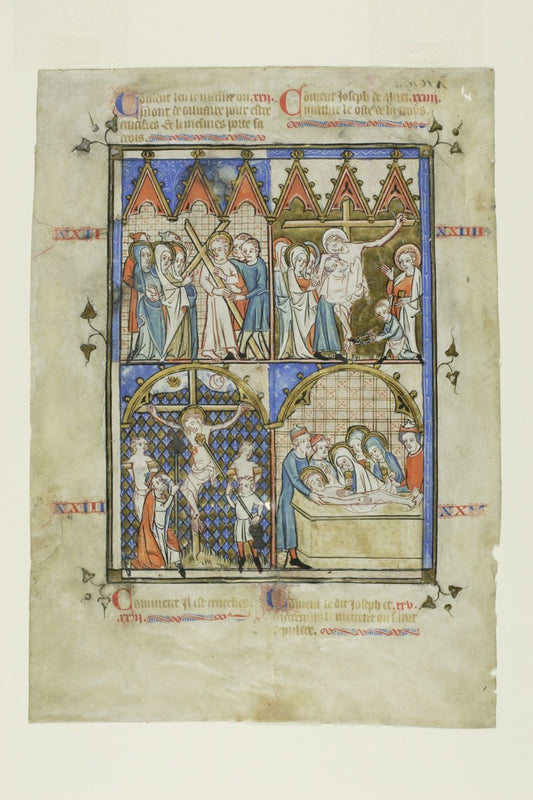 Coment len le maine ou .xxii.
mont de caluaire pour estre
crucefies. et li meismes porte sa
crois.
Coment Joseph de .xxiiii.
le de la crois.
XXII
XXIIII
XXIII
XX
Comment Il est crucefies.
.xxiii.
Coment le dit Joseph et .xxv.
le metent ou saint